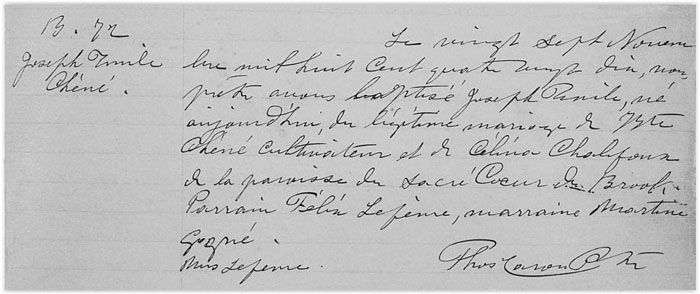 B. 72
Joseph Emile
Chéné.
Le vingt sept Novem
bre mil huit Cent quatre vingt dix, nous
prêtre avons baptisé Joseph Emile, né
aujourd'hui, du légitime mariage de
Chéné Cultivateur et de Célina Chalifoux
de la paroisse du Sacré Coeur
Parrain Félix Lefebvre, marraine Martine
Gagné.
Lefebvre.
Thos Caron Ptre